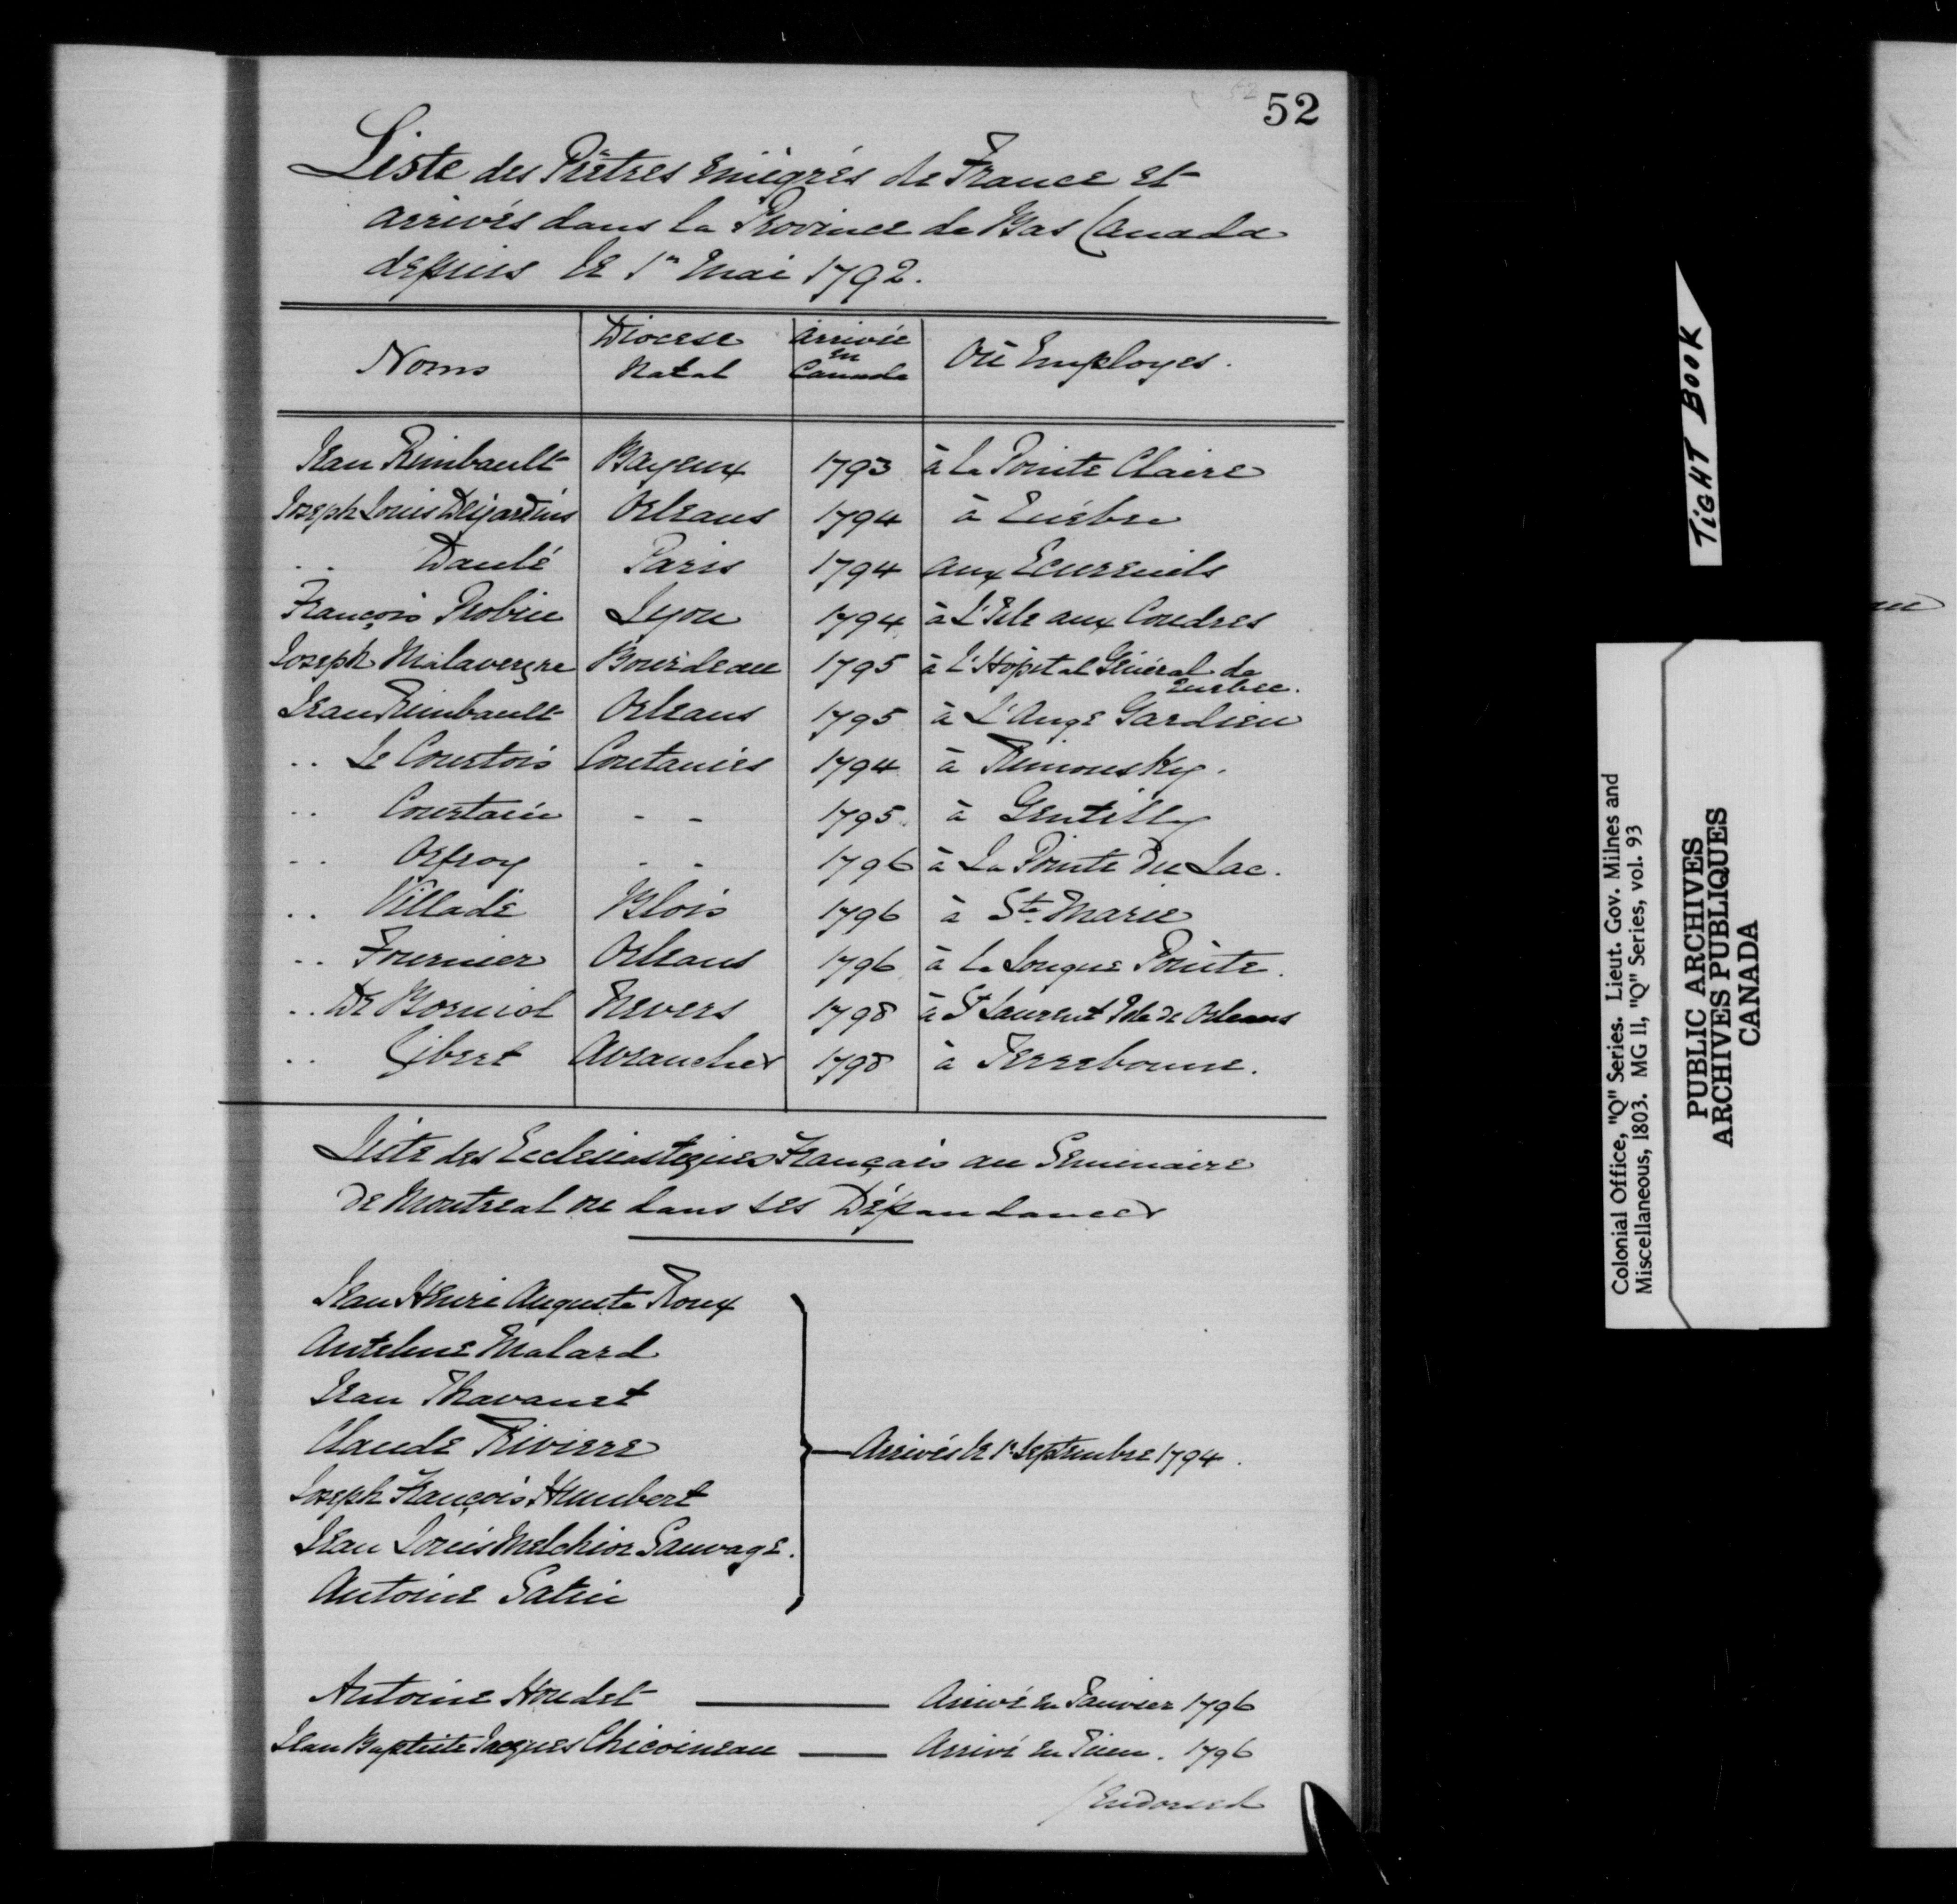 52
52
Liste des Prêtres émigrés de France et
arrivés dans la Province de Bas Canada
depuis le 1er Mai 1792.
Noms | Diocese Natal | Arrivée en Canada | Où Employes.
Jean Rimbault | Bayeux | 1793 | à la Pointe Claire
Joseph Louis Desjardins | Orleans | 1794 | à Québec
" Daulé | Paris | 1794 | aux Ecureuils
François Robin | Lyon | 1794 | à L'Isle aux Coudres
Joseph Malavergne | Bourdeau | 1795 | à L'Hôpital Général de Quebec.
Jean Rimbault | Orleans | 1795 | à L'Ange Gardien
" Le Courtois | Coutances | 1794 | à Rimousky.
" Courtain | " " | 1795. | à Gentilly
" Orfroy | " " | 1796 | à La Pointe Du Lac.
" Villade | Blois | 1796 | à Ste Marie
" Fournier | Orleans | 1796 | à la Longue Pointe.
" De Borniol | Nevers | 1798 | à St Laurent Isle de Orleans
" Gibert | Avranches | 1798 | à Terrebonne.
Liste des Ecclesiastiques Français au Seminaire
de Montreal ou dans ses Dépendances
Jean Henri Auguste Roux
Antelme Malard
Jean Thavanet
Claude Riviere
Arrivés le 1er Septembre 1794.
Joseph François Humbert
Jean Louis Melchior Sauvage.
Antoine Satin
Antoine Houdet — Arrivé en Janvier 1796
Jean Baptiste Jacques Chicoineau — Arrivé en Juin. 1796
/Endorsed
TIGHT BOOK
Colonial Office, "Q" Series. Lieut. Gov. Milnes and
Miscellaneous, 1803. MG 11, "Q" Series, vol. 93
PUBLIC ARCHIVES
ARCHIVES PUBLIQUES
CANADA